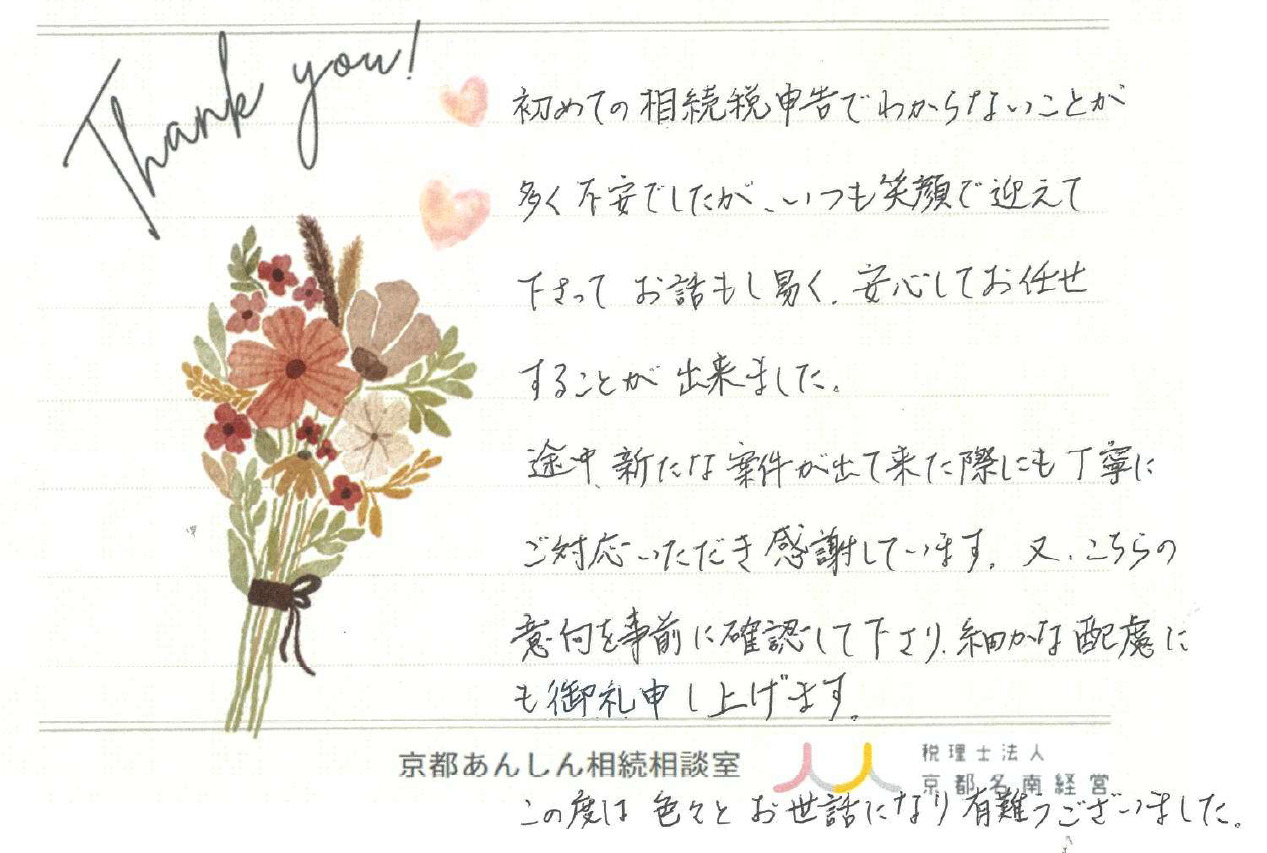 Thank you!
初めての相続税申告でわからないことが
多く不安でしたが、いつも笑顔で迎えて
下さって お話もし易く、安心してお任せ
することが出来ました。
途中、新たな案件が出て来た際にも丁寧に
ご対応いただき感謝しています。又、こちらの
意向を事前に確認して下さり、細かな配慮に
も御礼申し上げます。
京都あんしん相続相談室
税理士法人
京都名南経営
この度は 色々と お世話になり 有難うございました。